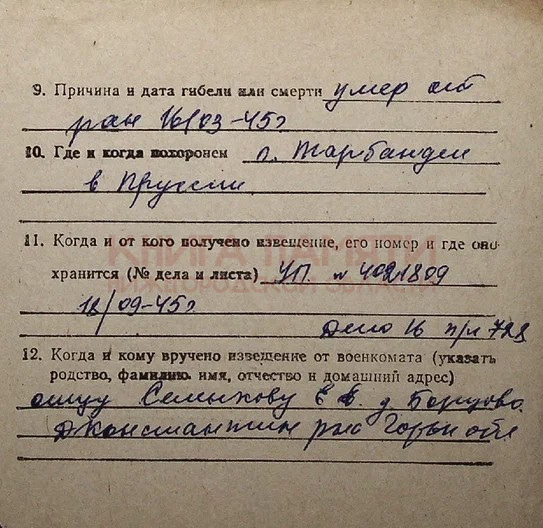 9. Причина и дата гибели или смерти умер от
ран 16/03-45г
10. Где и когда похоронен п. Тарбанден
в Пруссии.
КНИГА ПАМЯТИ
НИЖЕГОРОДСКОЙ ОБЛАСТИ
11. Когда и от кого получено извещение, его номер и где оно
хранится (№ дела и листа) УП. № 4021809
18/09-45г
Дело 16 п/л 728
12. Когда и кому вручено извещение от военкомата (указать
родство, фамилию, имя, отчество и домашний адрес)
отцу Семыхову Е д. Борцово
Дконстантин р/на Горьк обл